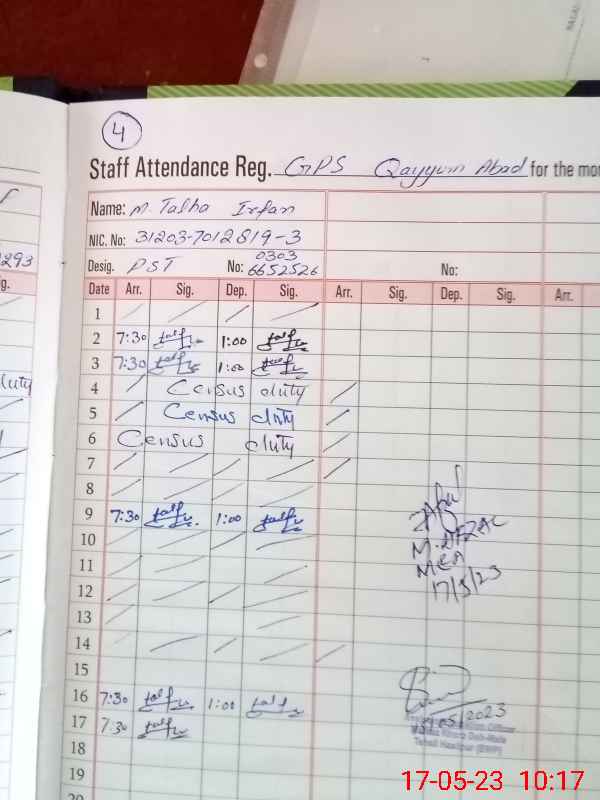 4
Staff Attendance Reg. GPS Qayyum Abad for the mo
Name: M. Talha Irfan
NIC. No: 31203-7012819-3
293
Desig. PST No: 0303 6652526 No:
Date Arr. Sig. Dep. Sig. Arr. Sig. Dep. Sig. Arr.
1
2 7:30 1:00
3 7:30 1:00
4 Census duty
5 Census duty
6 Census duty
7
8
9 7:30 1:00
10
11
12
13
14
15
16 7:30 1:00
17 7:30
18
19
20
M. AFZAL
MEA
17/5/23
/05/2023
17-05-23 10:17